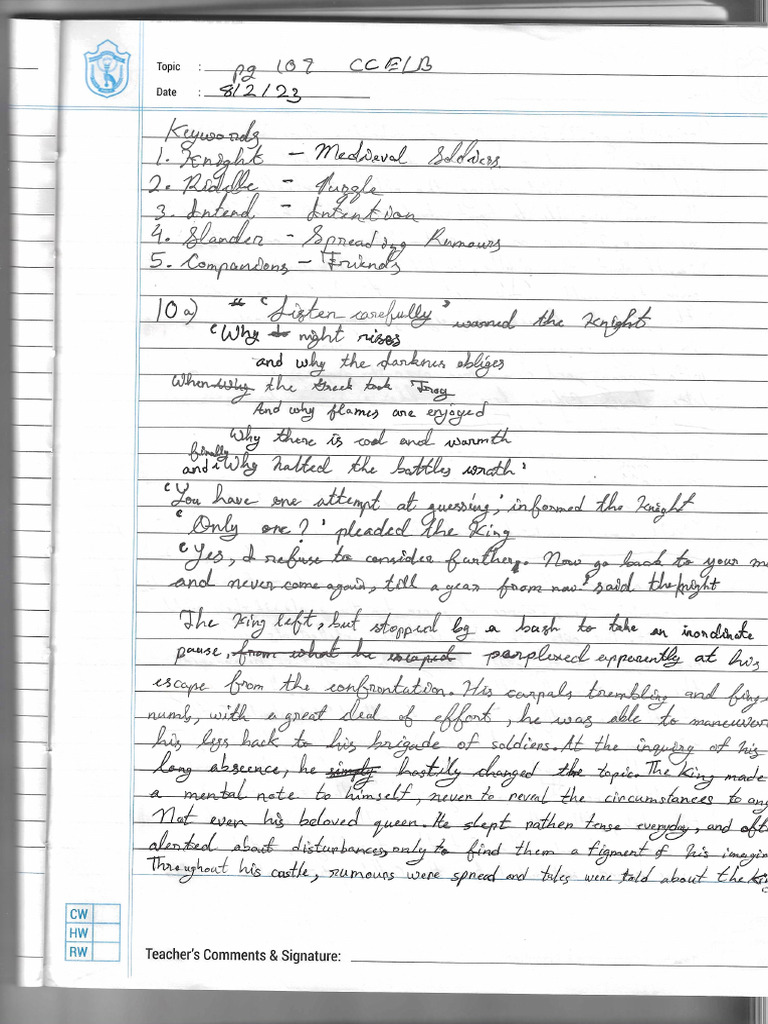 Topic : pg 109 CCE/LB
Date : 8/2/23
Keywords
1. Knight - Medieval Soldiers
2. Riddle - Puzzle
3. Intend - Intention
4. Slander - Spreading Rumours
5. Companions - Friends
10 a) " ‘Listen carefully’ warned the Knight
‘Why do night rises
and why the darknes obliges
When why the Greek took Troy
And why flames are enjoyed
Why there is cool and warmth
and finally Why halted the battles wrath’
‘You have one attempt at guessing,’ informed the Knight
‘Only one?’ pleaded the King
‘Yes, I refuse to consider further. Now go back to your
and never come again, till a year from now.’ said the knight
The King left, but stopped by a bush to take an inordinate
pause, from what he escaped perplexed apparently at his
escape from the confrontation. His carpals trembling and
numb, with a great deal of effort, he was able to maneuver
his legs back to his brigade of soldiers. At the inquiry of his
long abscence, he simply hastily changed the topic. The King made
a mental note to himself, never to reveal the circumstances to
Not even his beloved queen. He slept rather tense everyday, and
alerted about disturbances, only to find them a figment of his
Throughout his castle, rumours were spread and tales were told about the
CW
HW
RW
Teacher's Comments & Signature: